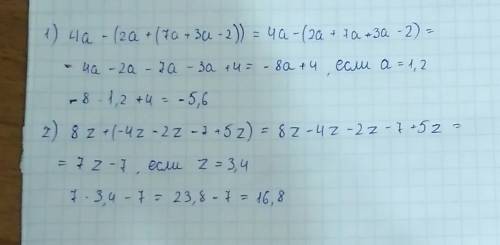 1) 4a - (2a + (7a + 3a - 2)) = 4a - (2a + 7a + 3a - 2) =
- 4a - 2a - 7a - 3a + 4 = - 8a + 4, если a = 1,2
- 8 · 1,2 + 4 = - 5,6
2) 8z + (-4z - 2z - 7 + 5z) = 8z - 4z - 2z - 7 + 5z =
= 7z - 7, если z = 3,4
7 · 3,4 - 7 = 23,8 - 7 = 16,8